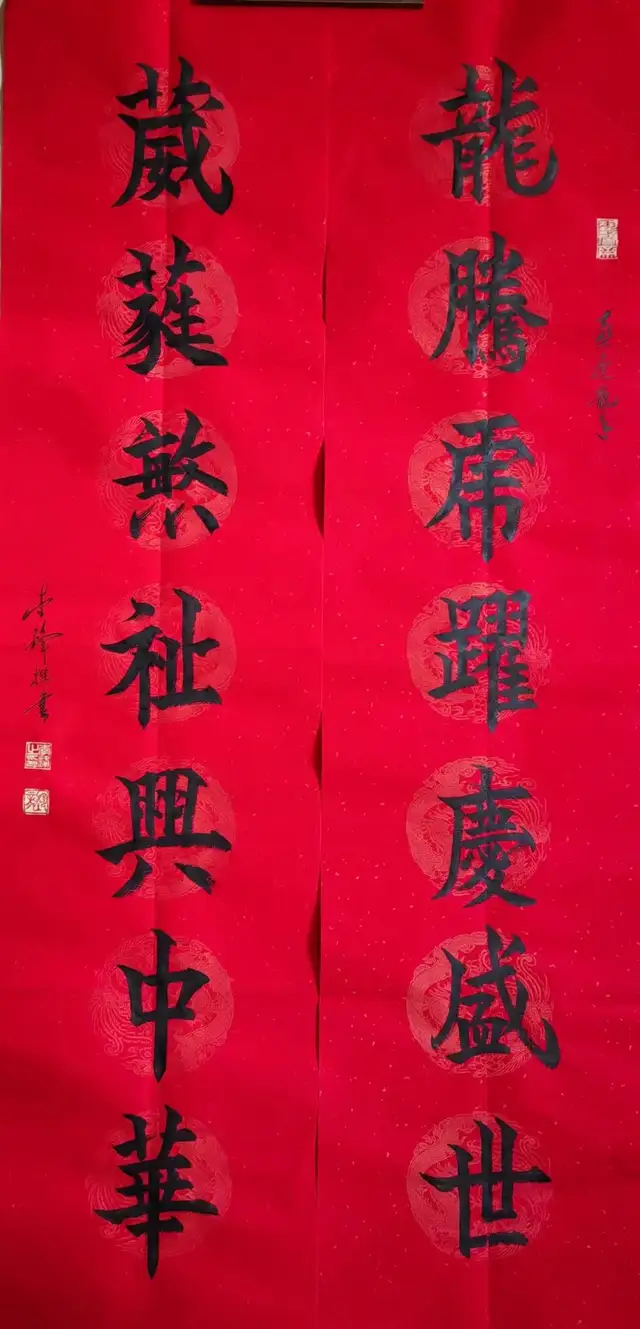 龍騰虎躍慶盛世
葳蕤繁祉興中華